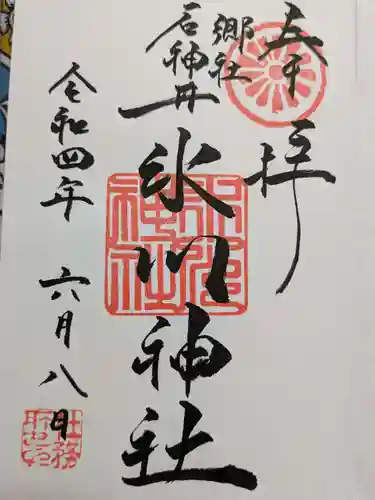 奉拝
郷社
石神井
氷川神社
令和四年 六月八日
氷川神社
社務所